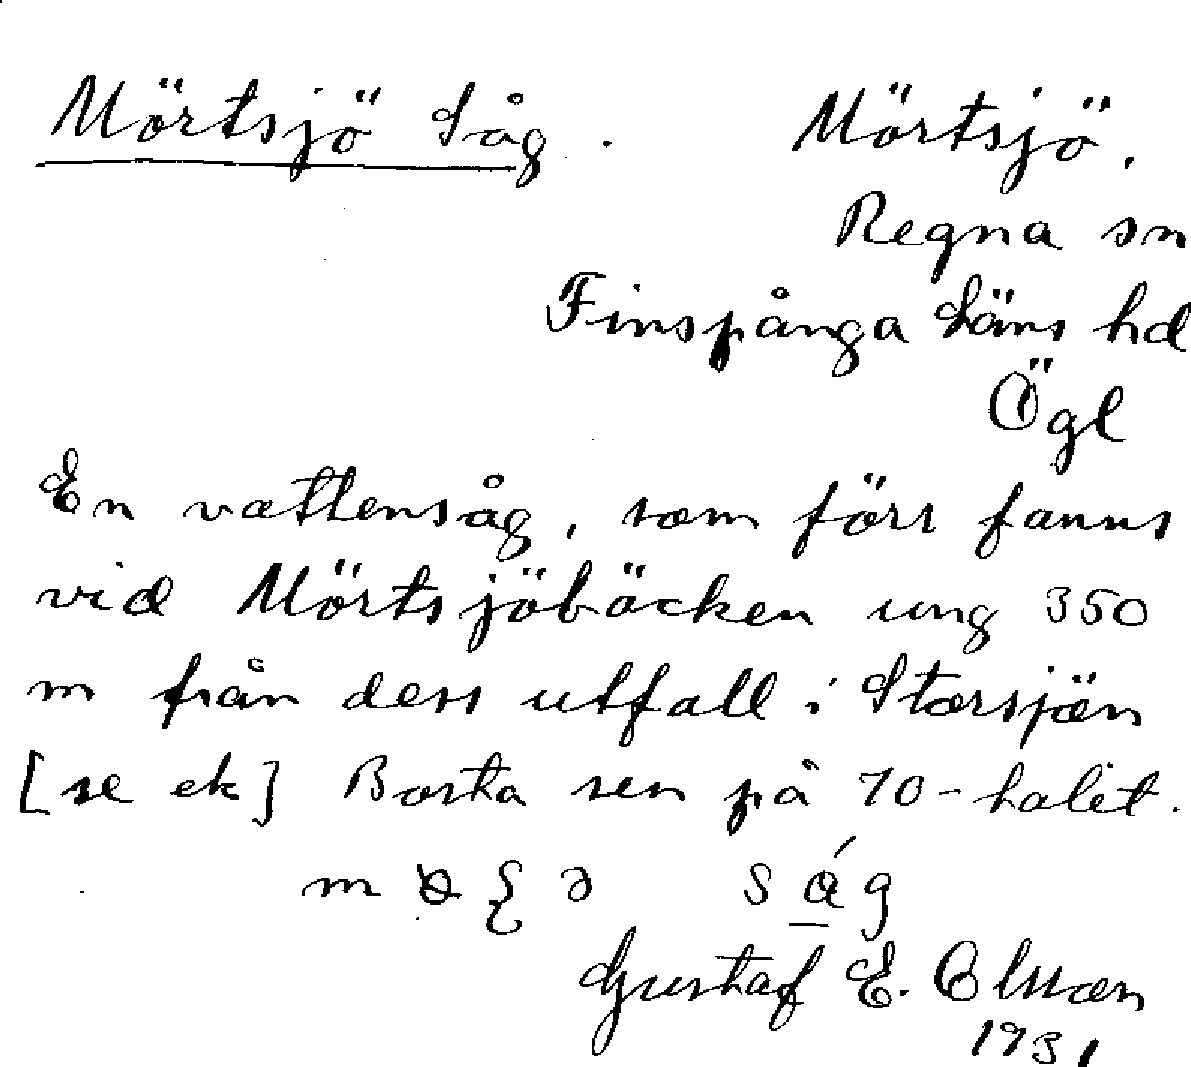 Mörtsjö Såg. Mörtsjö,
Regna sn
Finspånga Läns hd
Ögl
En vattensåg, som förr fanns
vid Mörtsjöbäcken ung 350
m från dess utfall i Storsjön
[se ek] Borta sen på 70-talet.
såg
Gustaf E. Olsson
1931